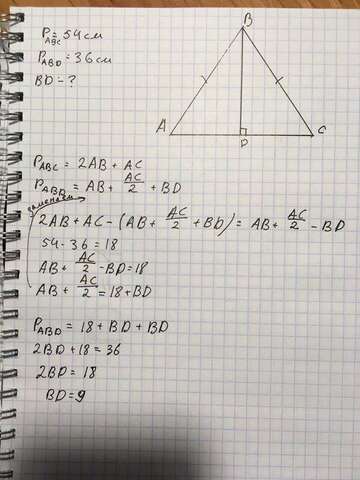 P_ABC = 54см
P_ABD = 36см
BD - ?
B
A
D
C
P_ABC = 2AB + AC
P_ABD = AB + AC/2 + BD
2AB + AC - (AB + AC/2 + BD) = AB + AC/2 - BD
54 - 36 = 18
AB + AC/2 - BD = 18
AB + AC/2 = 18 + BD
P_ABD = 18 + BD + BD
2BD + 18 = 36
2BD = 18
BD = 9